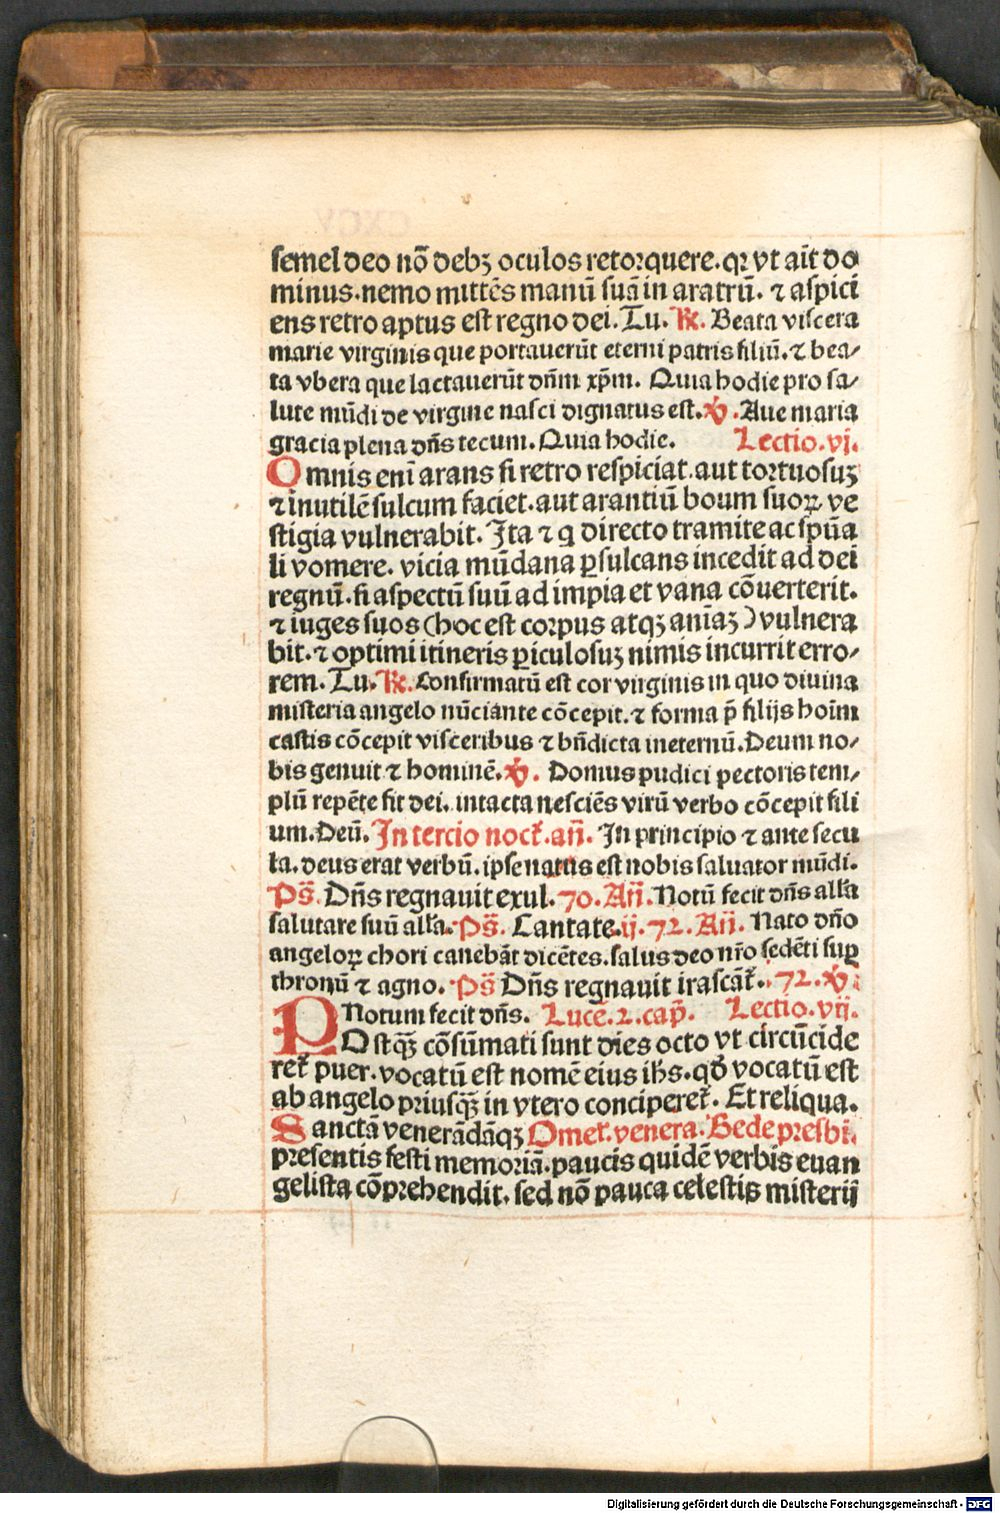 semel deo nō debꝫ oculos retorquere. qꝛ vt ait̄ do
minus. nemo mittēs manū suā in aratrū. ⁊ aspici
ens retro aptus est regno dei. Tu. ℟. Beata viscera
marie virginis que portauerūt eterni patris filiū. ⁊ bea/
ta vbera que lactauerūt dn̄m xp̄m. Quia hodie pro sa/
lute mūdi de virgine nasci dignatus est. ℣. Aue maria
gracia plena dn̄s tecum. Quia hodie. Lectio. vj.
Omnis eni̅ arans si retro respiciat. aut tortuosuꝫ
⁊ inutilē sulcum faciet. aut arantiū boum suoꝝ ve
stigia vulnerabit. Ita ⁊ q̇ directo tramite ac spūa
li vomere. vicia mūdana ꝑsulcans incedit ad dei
regnū. si aspectū suū ad impia et vana cōuerterit.
⁊ iuges suos (hoc est corpus atqꝫ anīaꝫ) vulnera
bit. ⁊ optimi itineris ꝑiculosuꝫ nimis incurrit erro/
rem. Tu. ℟. Confirmatū est cor virginis in quo diuina
misteria angelo nūciante cōcepit. ⁊ forma p̄ filijs hoīm
castis cōcepit visceribus ⁊ bn̄dicta ineternū. Deum no/
bis genuit ⁊ hominē. ℣. Domus pudici pectoris tem/
plū repēte fit dei. intacta nesciēs virū verbo cōcepit fili
um. Deū. In tercio noct̄. an̄. In principio ⁊ ante secu
la. deus erat verbū. ipse natus est nobis saluator mūdi.
Ps̄. Dn̄s regnauit exul. 70. An̄. Notū fecit dn̄s all̄a
salutare suū all̄a. Ps̄. Cantate. ij. 72. An̄. Nato dn̄o
angeloꝝ chori canebāt dicētes. salus deo nr̄o sedēti suꝑ
thronū ⁊ agno. Ps̄ Dn̄s regnauit irascāt̄. 72. ℣.
Notum fecit dn̄s. Luce. 2. cap̄. Lectio. vij.
POstqꝫ̄ cōsūmati sunt dies octo vt circūcide
ret̄ puer. vocatū est nomē eius ih̄s. qd̄ vocatū est
ab angelo priusqꝫ̄ in vtero conciperet̄. Et reliqua.
Sanctā venerādāqꝫ Omet̄. venera. Bede presbi.
presentis festi memoriā. paucis quidē verbis euan
gelista cōprehendit. sed nō pauca celestis misterij
Digitalisierung gefördert durch die Deutsche Forschungsgemeinschaft - DFG